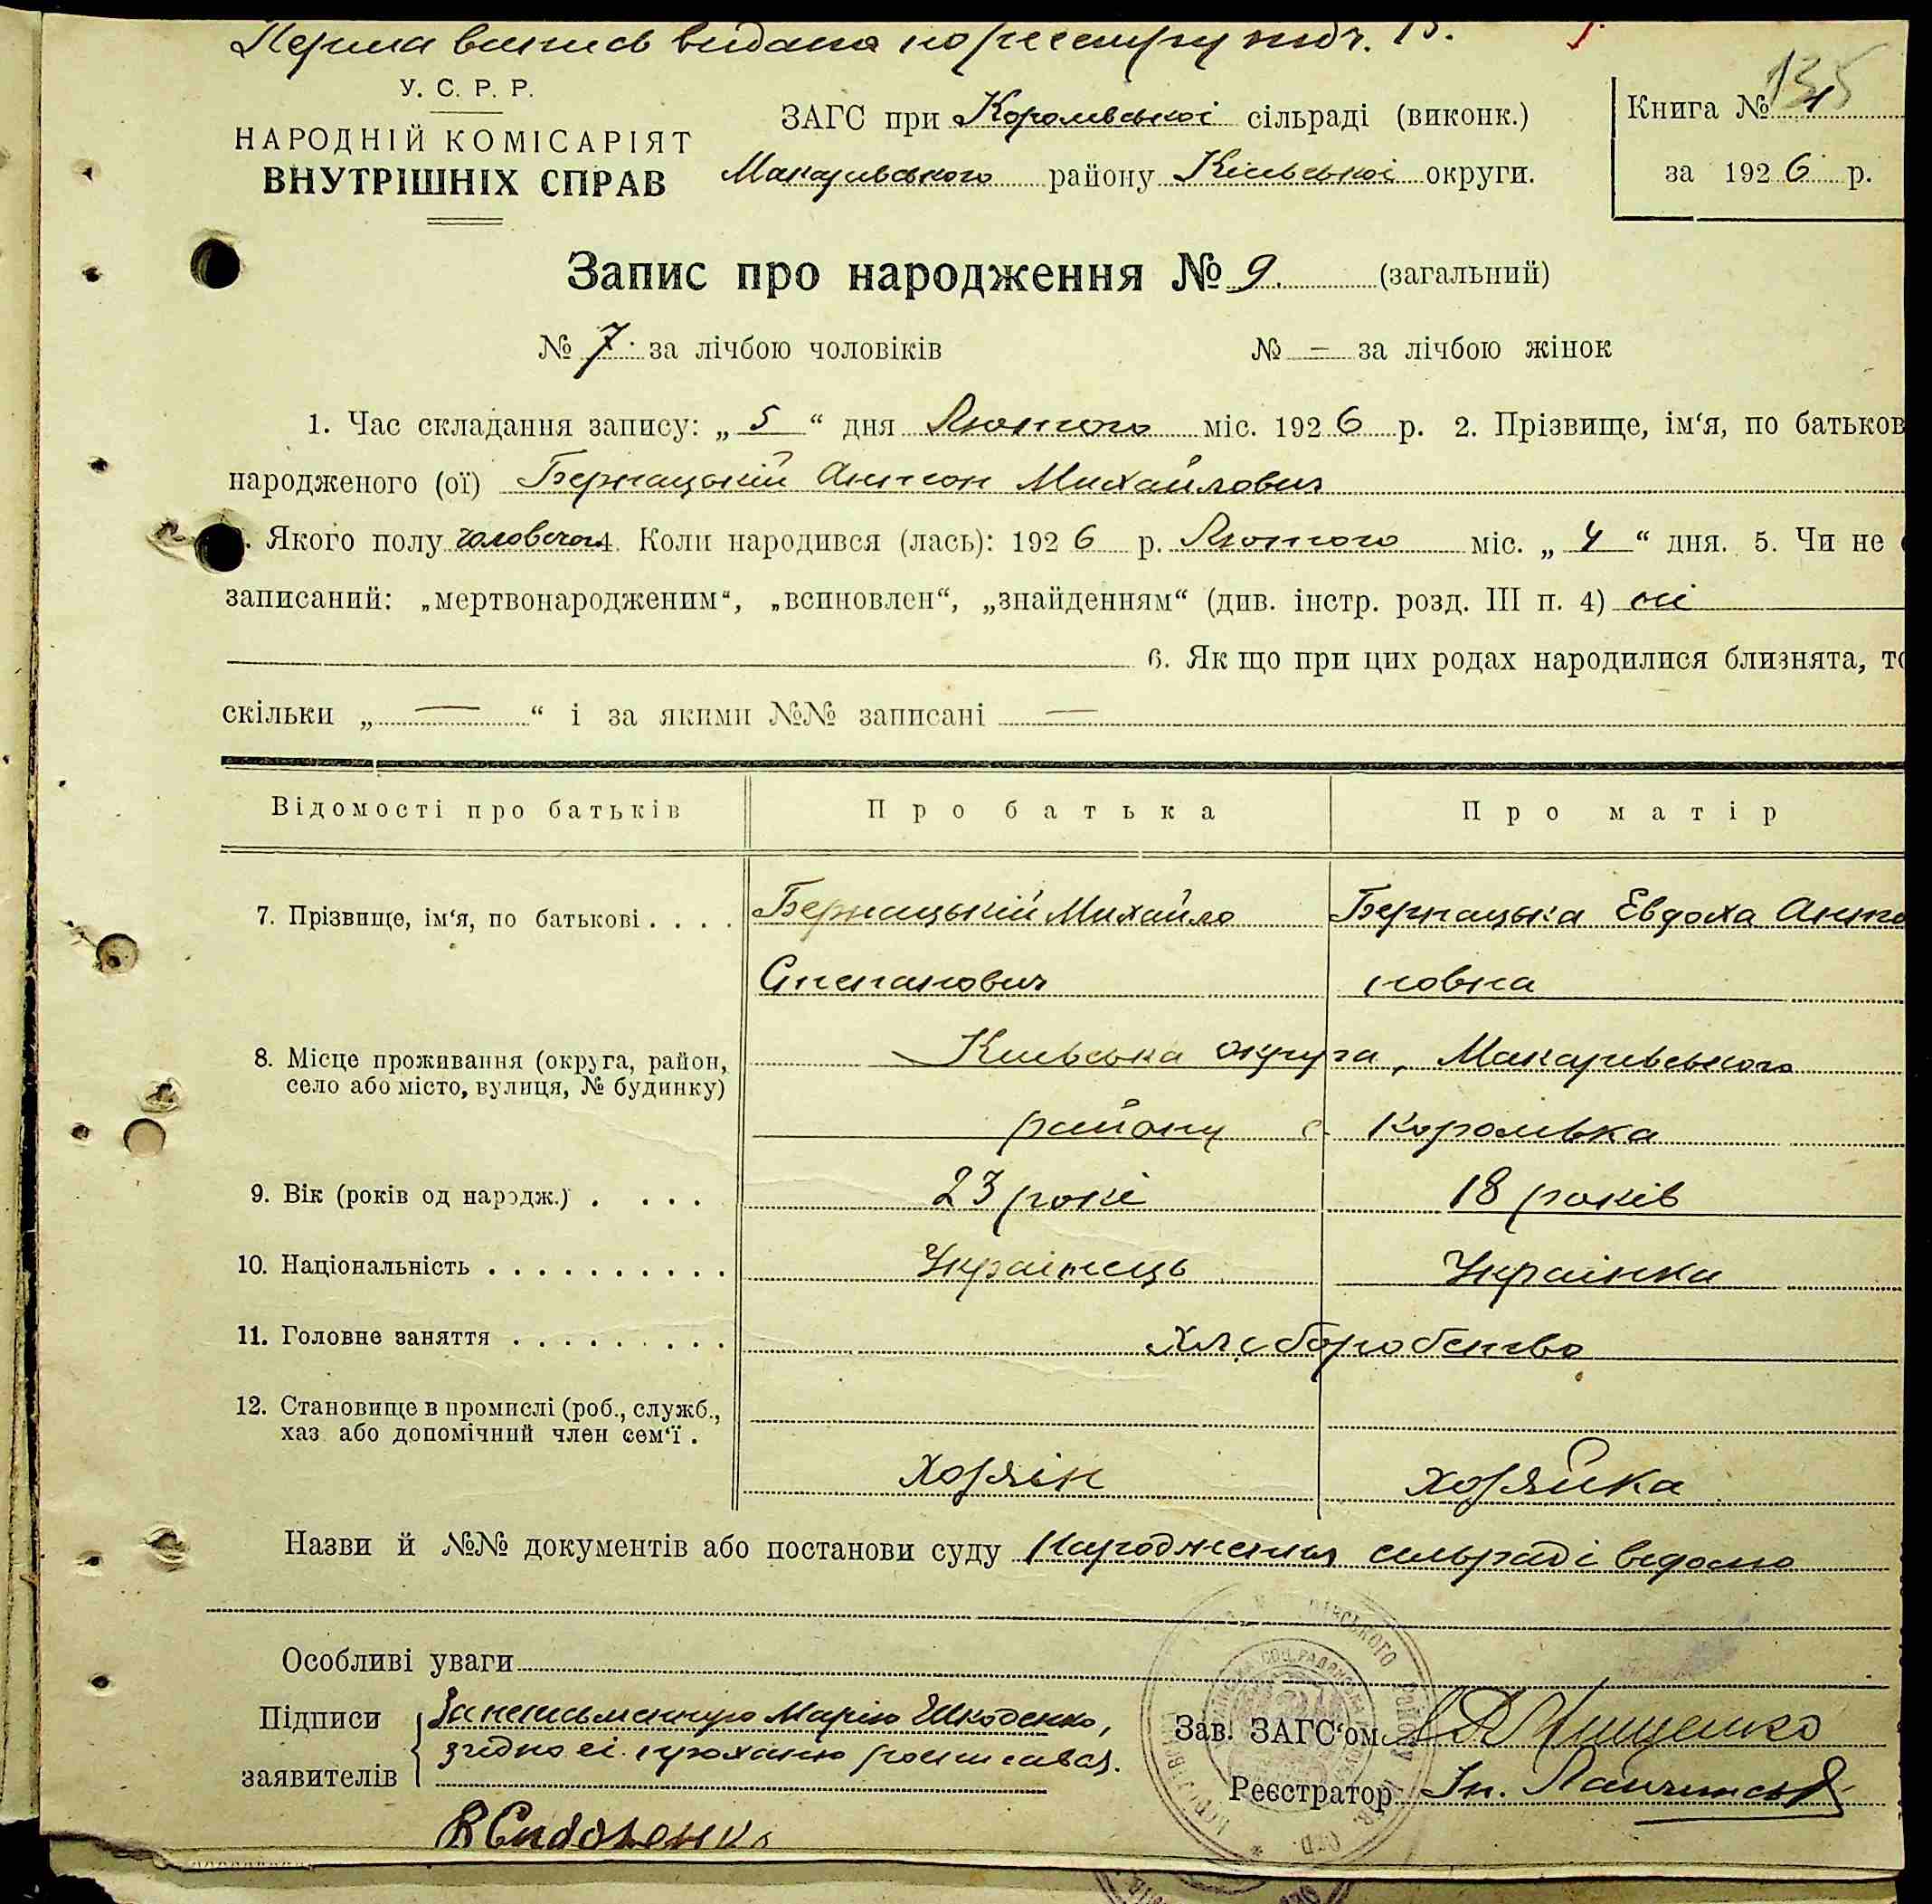 Перша випись видана по реєстру під ч. 13.
135
У. С. Р. Р.
НАРОДНІЙ КОМІСАРІЯТ
ВНУТРІШНІХ СПРАВ
ЗАГС при Королівській сільраді (виконк.)
Макарівського району Київської округи.
Книга № 1
за 1926 р.
Запис про народження № 9. (загальний)
№ 7. за лічбою чоловіків № — за лічбою жінок
1. Час складання запису: „ 5 “ дня Лютого міс. 1926 р. 2. Прізвище, ім‘я, по батьков
народженого (ої) Бернацькій Антон Михайлович
Якого полу 4. Коли народився (лась): 1926 р. Лютого міс. „ 4 “ дня. 5. Чи не
записаний: „мертвонародженим“, „всиновлен“, „знайденням“ (див. інстр. розд. III п. 4) ні
6. Як що при цих родах народилися близнята, то
скільки „ — “ і за якими №№ записані —
Відомості про батьків Про батька Про матір
7. Прізвище, ім‘я, по батькові . . . . Бернацький Михайло Бернацька Евдоха Анто
Степанович новна
8. Місце проживання (округа, район, Київська округа, Макарівського
село або місто, вулиця, № будинку)
району с. Королівка
9. Вік (років од народж.) . . . . 23 рокі 18 років
10. Національність . . . . . . . . . . Українець Українка
11. Головне заняття . . . . . . . . . Хліборобство
12. Становище в промислі (роб., служб.,
хаз або допомічний член сем‘ї .
Хозяїн хозяйка
Назви й №№ документів або постанови суду Народження сільраді відомо
Особливі уваги
Підписи За неписьменную Марію Шкоденко,
згідно єї проханю росписавсь.
заявителів
Зав. ЗАГС‘ом
Реєстратор Ін.